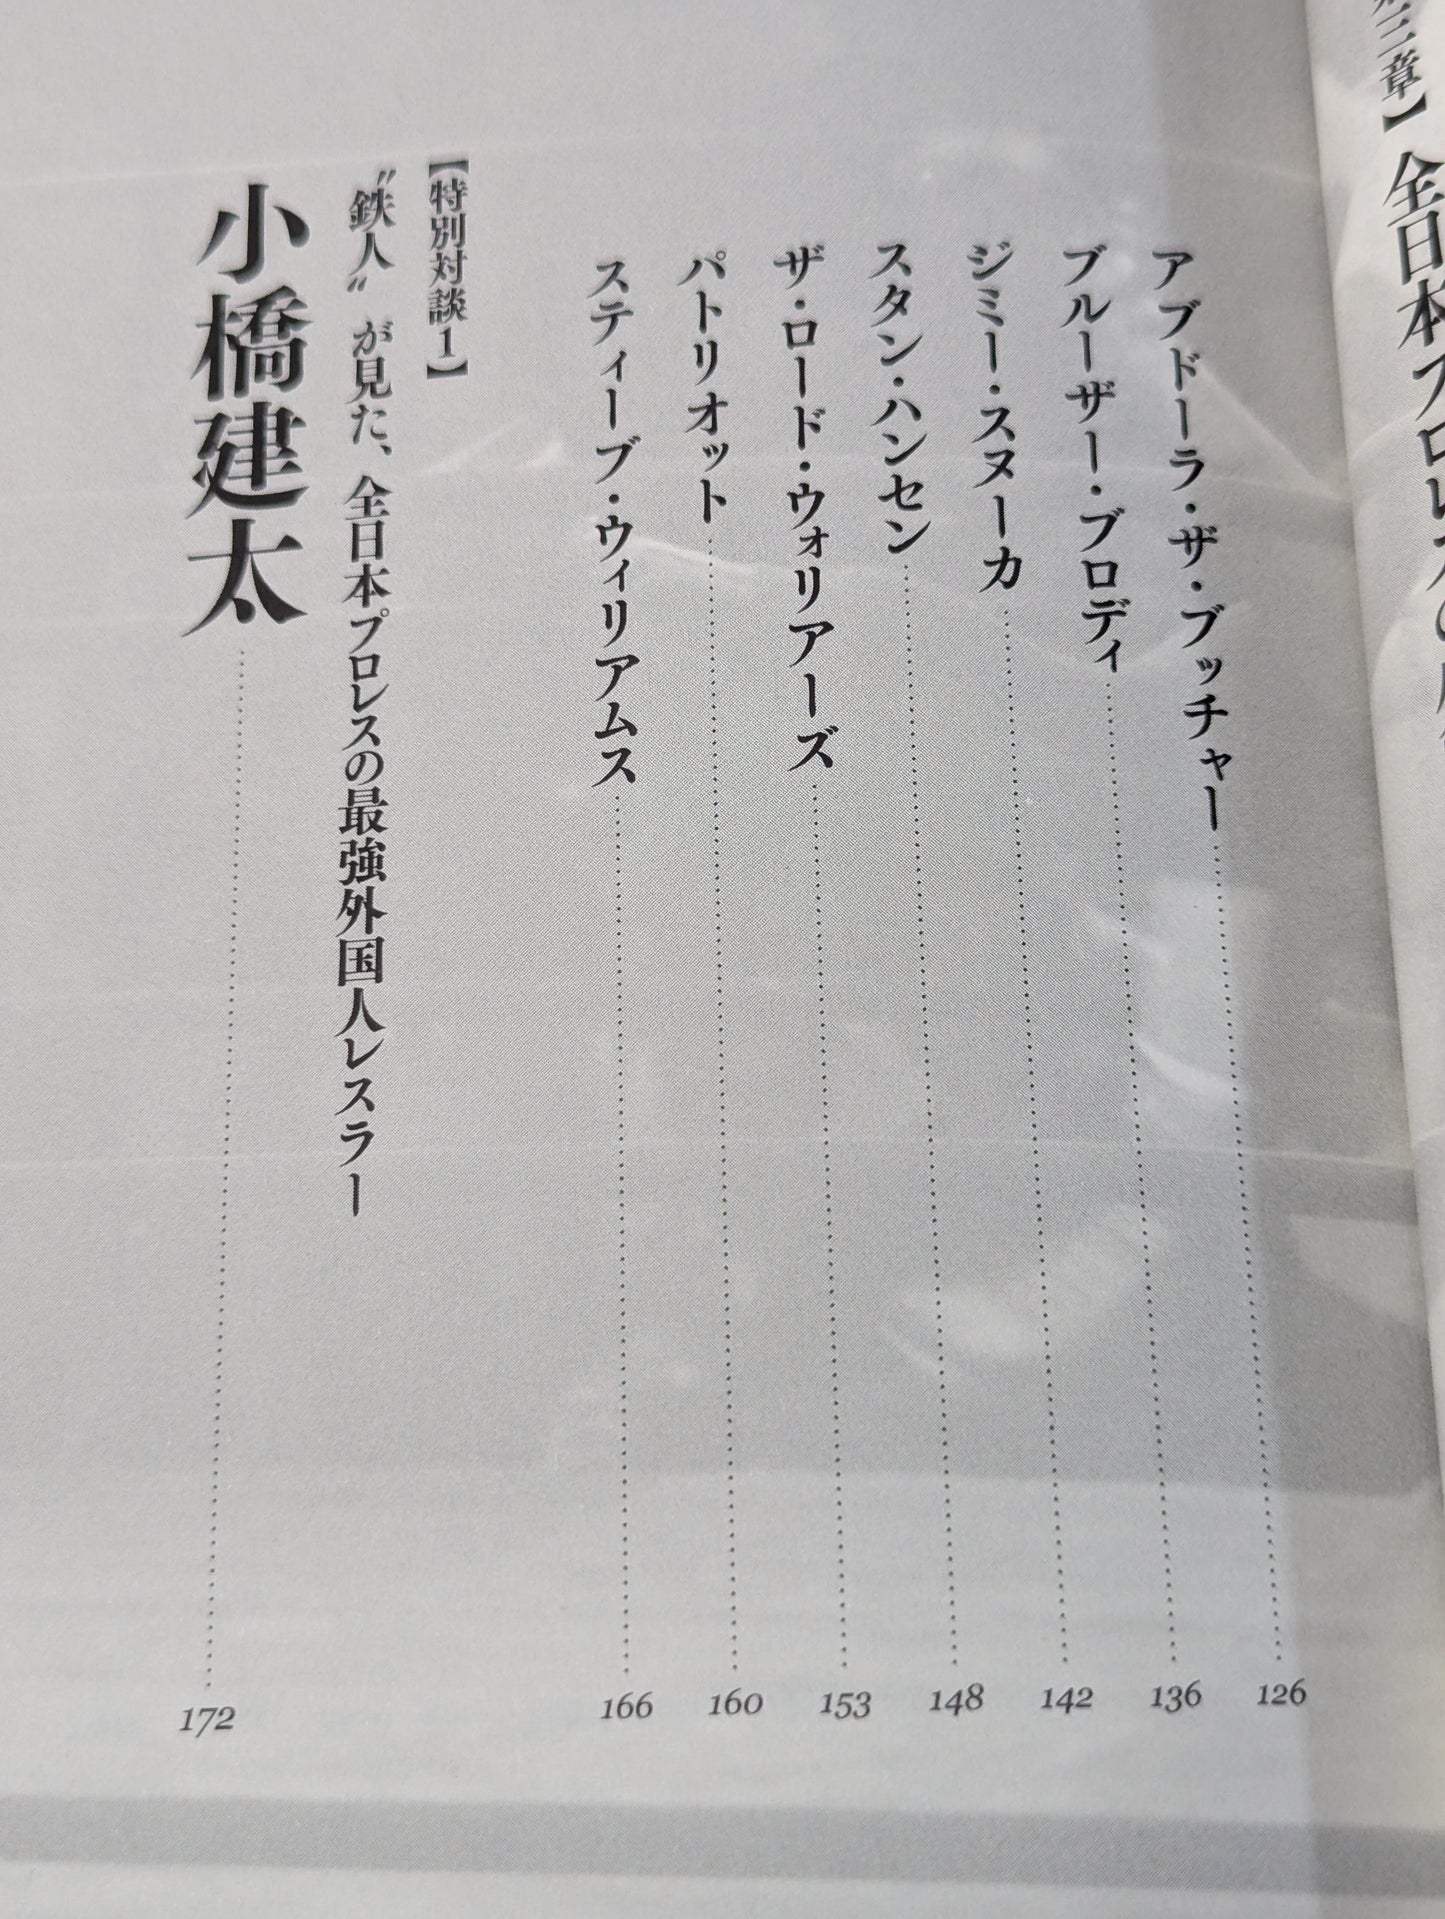 三章】全日本プロレスの
アブドーラ・ザ・ブッチャー 126
ブルーザー・ブロディ 136
ジミー・スヌーカ 142
スタン・ハンセン 148
ザ・ロード・ウォリアーズ 153
パトリオット 160
スティーブ・ウィリアムス 166
【特別対談1】
〝鉄人〟が見た、全日本プロレスの最強外国人レスラー
小橋建太 172